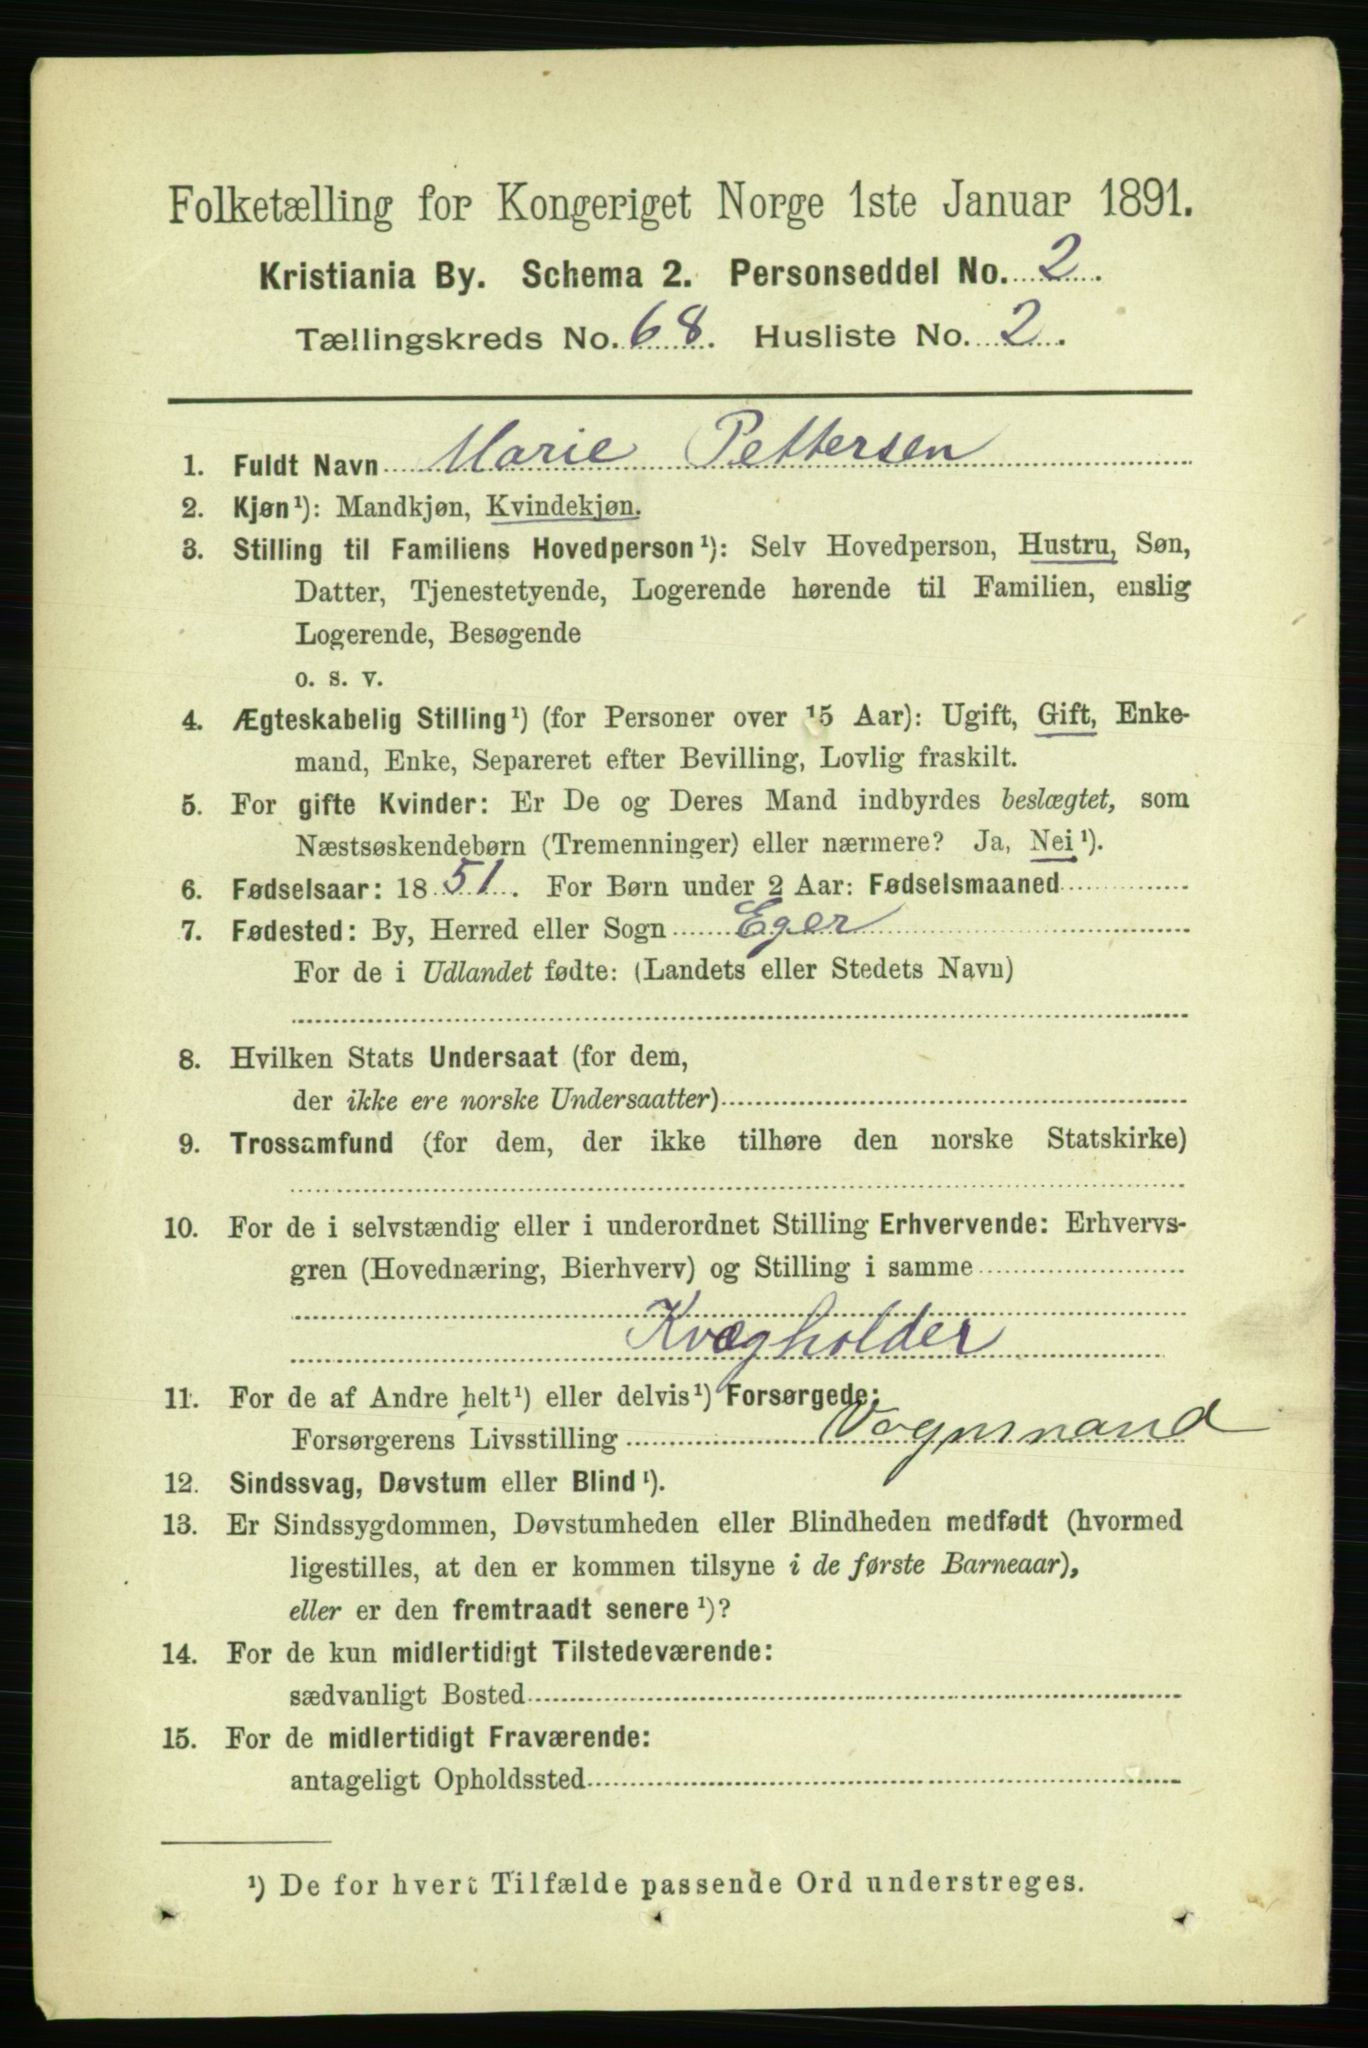 Folketælling for Kongeriget Norge 1ste Januar 1891.
Kristiania By. Schema 2. Personseddel No. 2.
Tællingskreds No. 68. Husliste No. 2.
1. Fuldt Navn Marie Pettersen
2. Kjøn¹): Mandkjøn, Kvindekjøn.
3. Stilling til Familiens Hovedperson¹): Selv Hovedperson, Hustru, Søn,
Datter, Tjenestetyende, Logerende hørende til Familien, enslig
Logerende, Besøgende
o. s. v.
4. Ægteskabelig Stilling¹) (for Personer over 15 Aar): Ugift, Gift, Enke-
mand, Enke, Separeret efter Bevilling, Lovlig fraskilt.
5. For gifte Kvinder: Er De og Deres Mand indbyrdes beslægtet, som
Næstsøskendebørn (Tremenninger) eller nærmere? Ja, Nei¹).
6. Fødselsaar: 1851. For Børn under 2 Aar: Fødselsmaaned
7. Fødested: By, Herred eller Sogn Eger
For de i Udlandet fødte: (Landets eller Stedets Navn)
8. Hvilken Stats Undersaat (for dem,
der ikke ere norske Undersaatter)
9. Trossamfund (for dem, der ikke tilhøre den norske Statskirke)
10. For de i selvstændig eller i underordnet Stilling Erhvervende: Erhvervs-
gren (Hovednæring, Bierhverv) og Stilling i samme
Kvægholder
11. For de af Andre helt¹) eller delvis¹) Forsørgede:
Forsørgerens Livsstilling Vognmand
12. Sindssvag, Døvstum eller Blind¹).
13. Er Sindssygdommen, Døvstumheden eller Blindheden medfødt (hvormed
ligestilles, at den er kommen tilsyne i de første Barneaar),
eller er den fremtraadt senere¹)?
14. For de kun midlertidigt Tilstedeværende:
sædvanligt Bosted
15. For de midlertidigt Fraværende:
antageligt Opholdssted
¹) De for hvert Tilfælde passende Ord understreges.